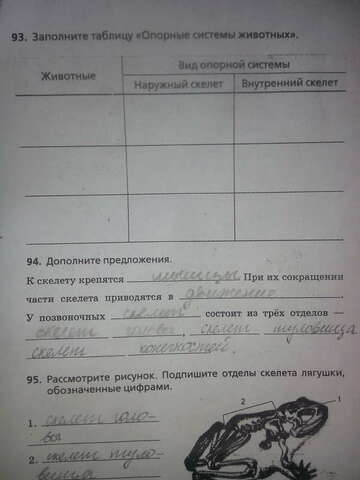 93. Заполните таблицу «Опорные системы животных».
Животные
Вид опорной системы
Наружный скелет
Внутренний скелет
94. Дополните предложения.
К скелету крепятся мышцы. При их сокращении
части скелета приводятся в движение.
У позвоночных скелет состоит из трёх отделов —
скелет головы, скелет туловища
скелет конечностей.
95. Рассмотрите рисунок. Подпишите отделы скелета лягушки,
обозначенные цифрами.
2
1
1. скелет голо-
вы
2. скелет туло-
вища